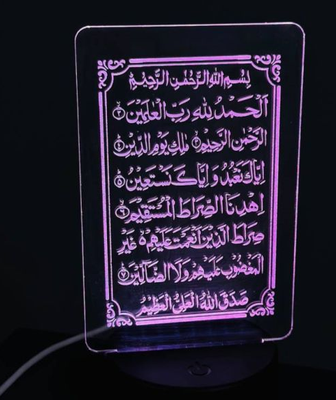 بِسْمِ اللهِ الرَّحْمٰنِ الرَّحِيْمِ
اَلْحَمْدُ لِلّٰهِ رَبِّ الْعٰلَمِيْنَ ٢
الرَّحْمٰنِ الرَّحِيْمِ ٣ مٰلِكِ يَوْمِ الدِّيْنِ ٤
اِيَّاكَ نَعْبُدُ وَاِيَّاكَ نَسْتَعِيْنُ ٥
اِهْدِنَا الصِّرَاطَ الْمُسْتَقِيْمَ ٦
صِرَاطَ الَّذِيْنَ اَنْعَمْتَ عَلَيْهِمْ ەۙ غَيْرِ
الْمَغْضُوْبِ عَلَيْهِمْ وَلَا الضَّآلِّيْنَ ٧
صَدَقَ اللهُ الْعَلِيُّ الْعَظِيْمُ